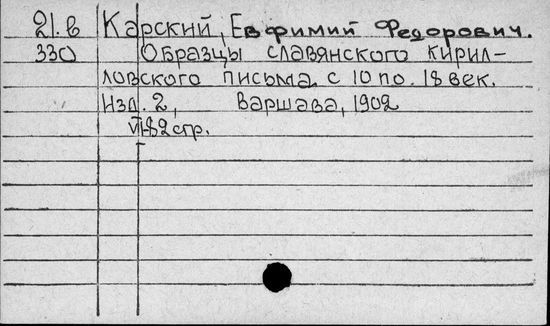 21.в Карский, Евфимий Федорович.
330 Образцы славянского кирил-
ловского письма с 10 по. 18 век.
Изд. 2, Варшава, 1902
VI-82 стр.